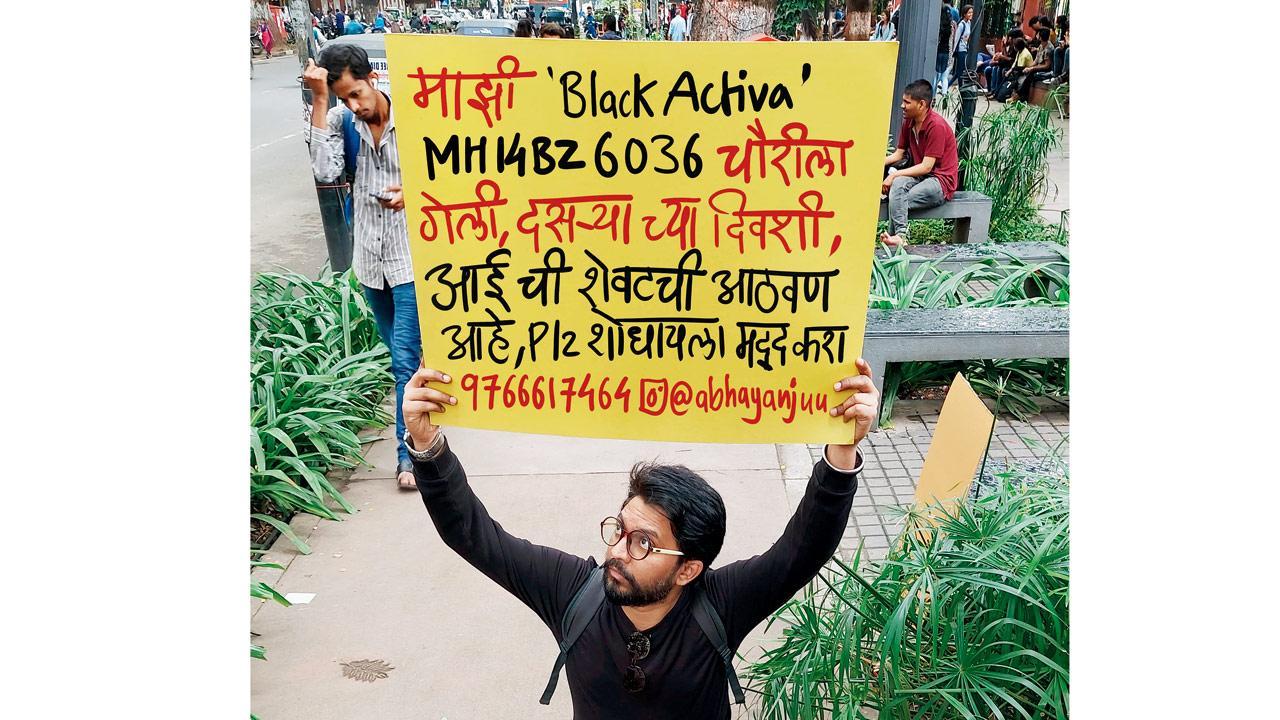 माझी 'Black Activa'
MH14BZ6036 चोरीला
गेली, दसऱ्या च्या दिवशी,
आई ची शेवटची आठवण
आहे, Plz शोधायला मद्दद करा
9766617464 @abhayanjuu